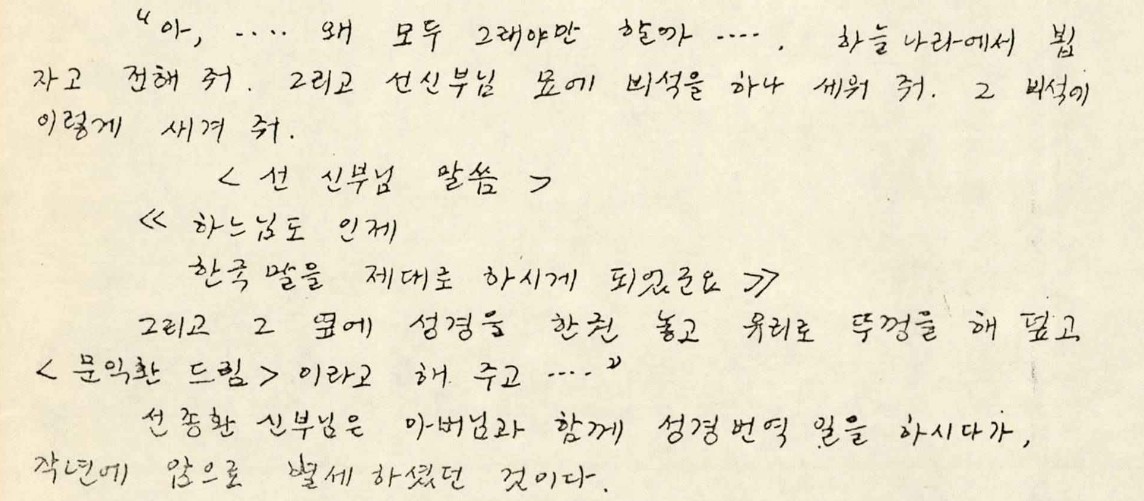 "아, .... 왜 모두 그래야만 할까 .... . 하늘나라에서 뵙
자고 전해 줘. 그리고 선신부님 묘에 비석을 하나 세워 줘. 그 비석에
이렇게 새겨 줘.
< 선 신부님 말씀 >
≪ 하느님도 인제
한국말을 제대로 하시게 되었군요 ≫
그리고 그 옆에 성경을 한권 놓고 유리로 뚜껑을 해 덮고
< 문익환 드림 > 이라고 해 주고 ...."
선종환 신부님은 아버님과 함께 성경번역 일을 하시다가,
작년에 암으로 별세하셨던 것이다.